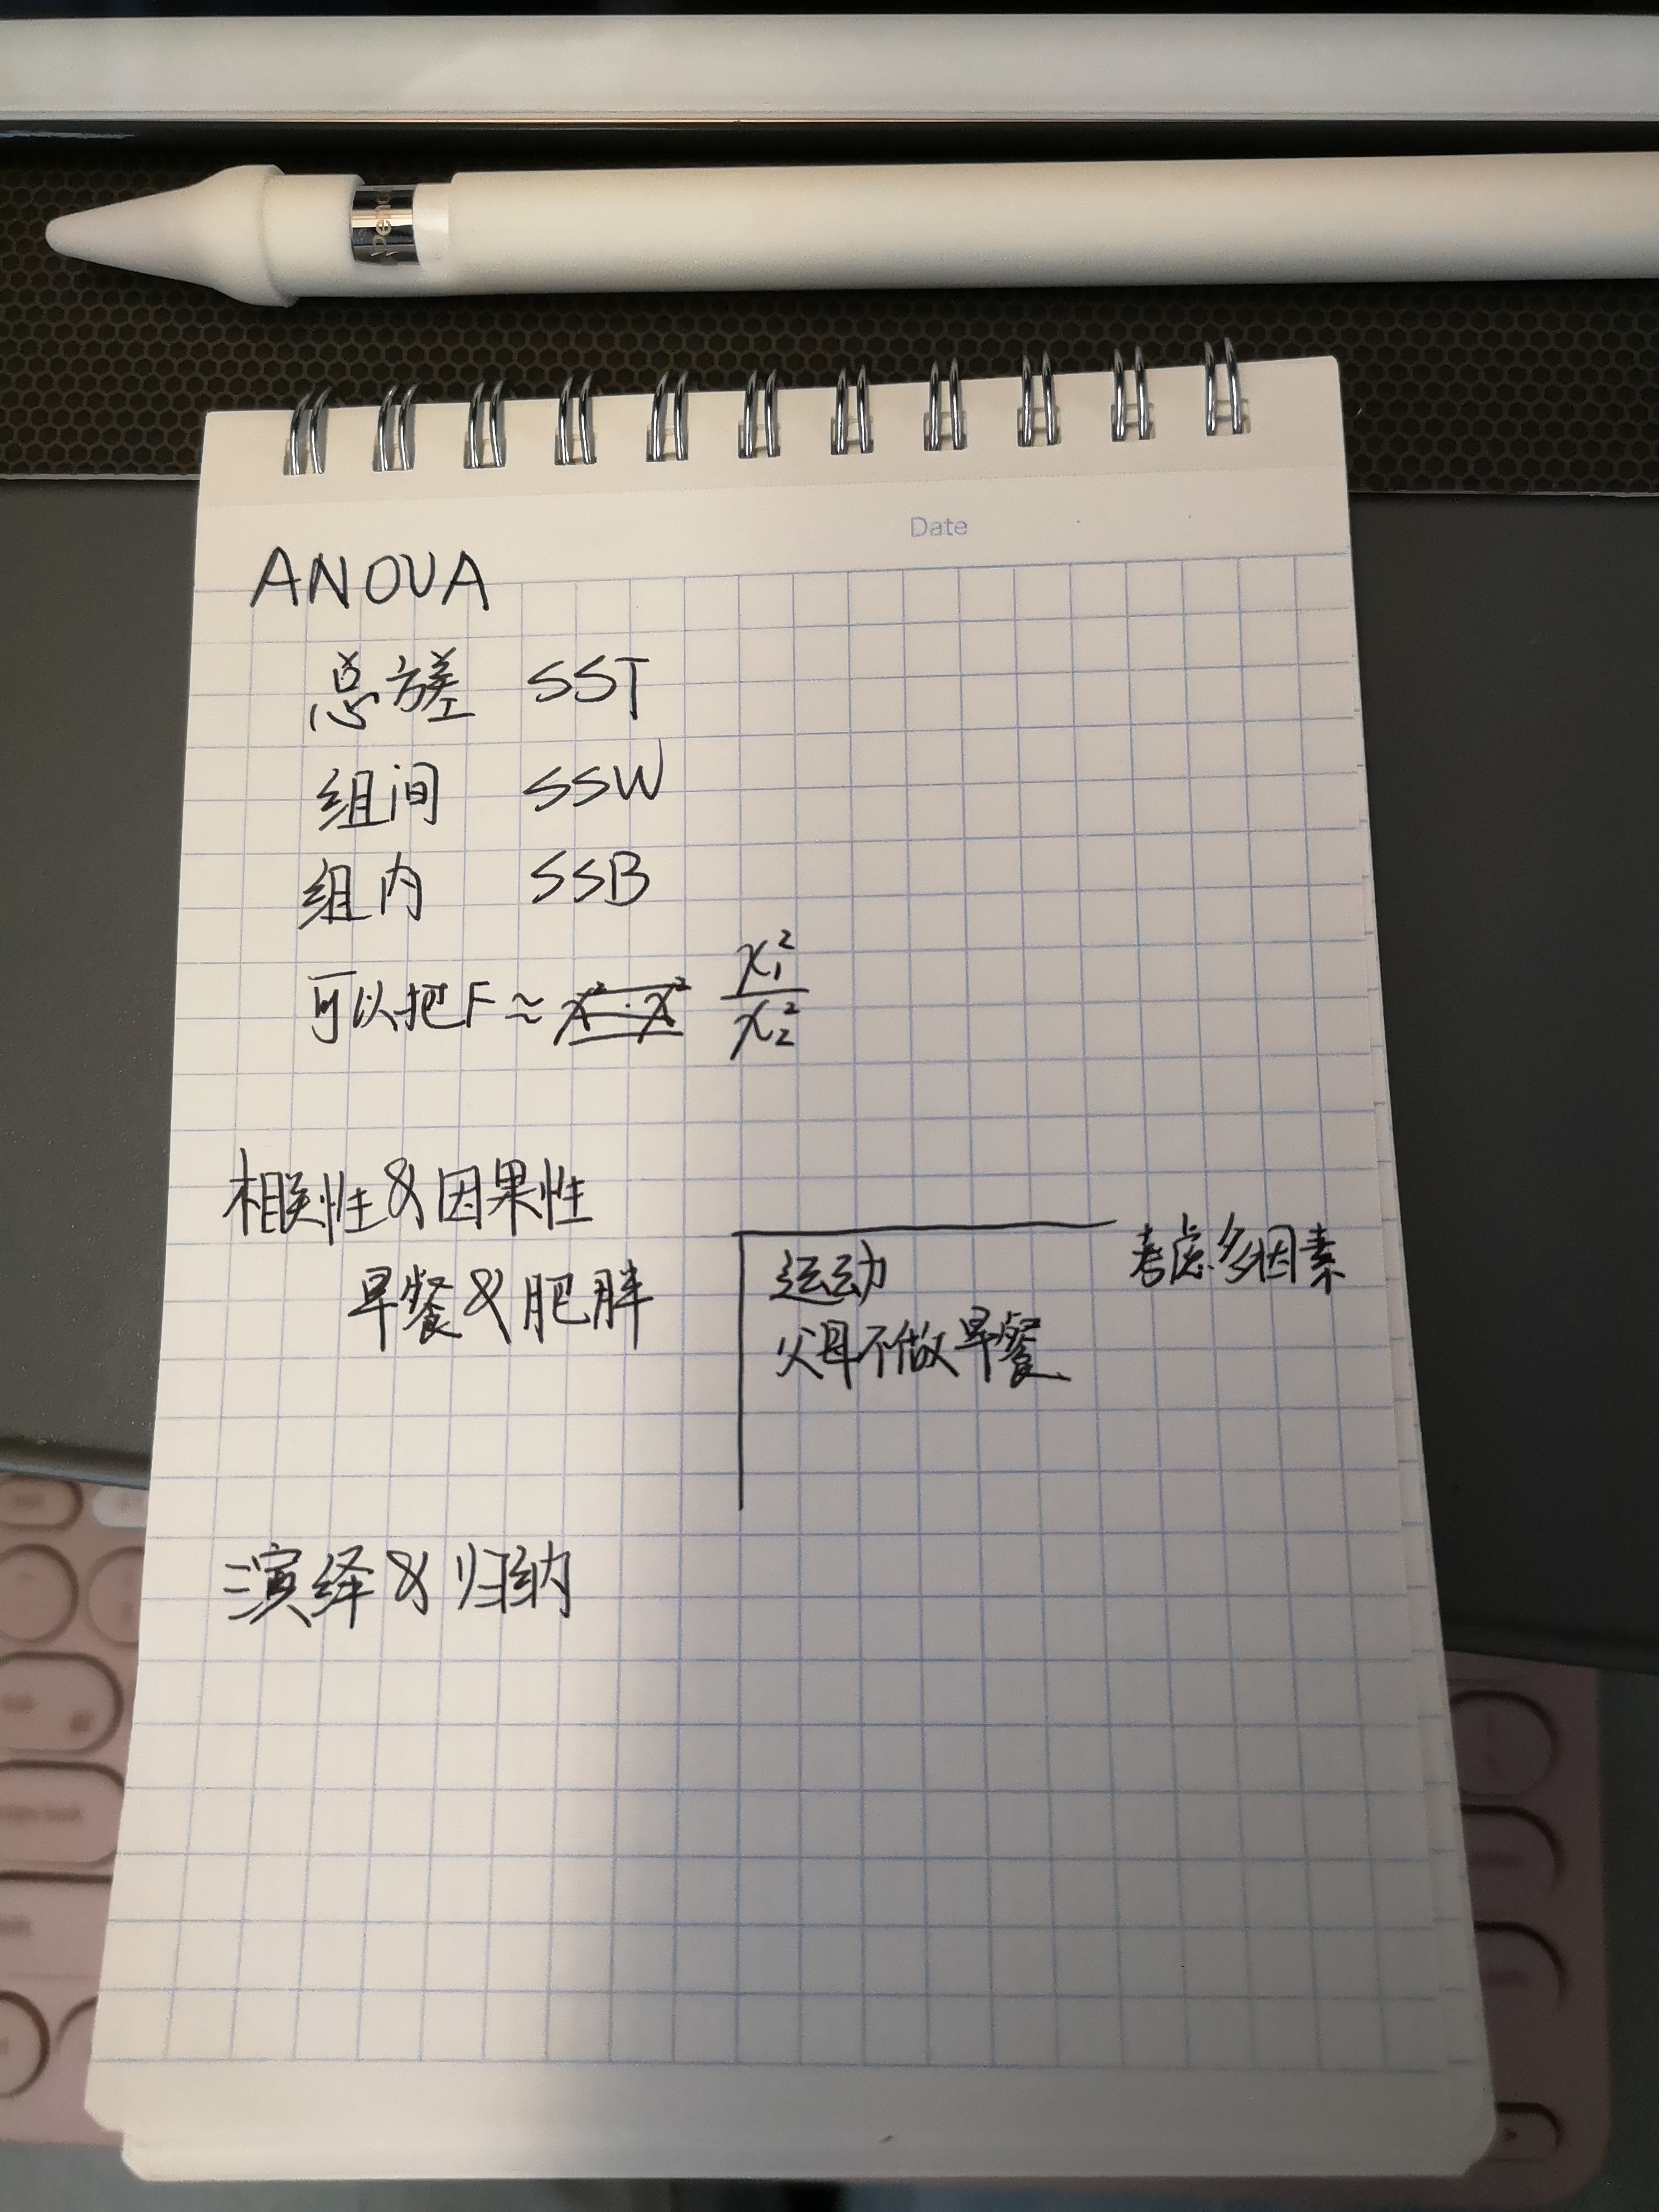 Pencil
Date
ANOVA
总方差 SST
组间 SSW
组内 SSB
可以把F≈ χ₁²/χ₂²
相关性&因果性
早餐&肥胖
运动
父母不做早餐
考虑多因素
演绎&归纳